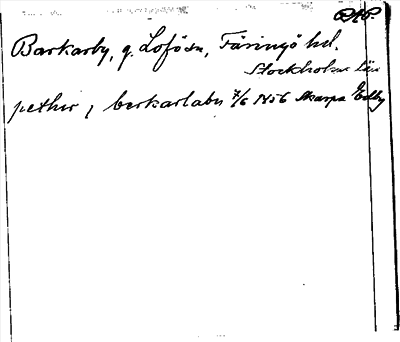 Barkarby, g. Lofö sn, Färingö hd.
Stockholms län
pether j berkarlaby 7/6 1456 Skarpa Edby